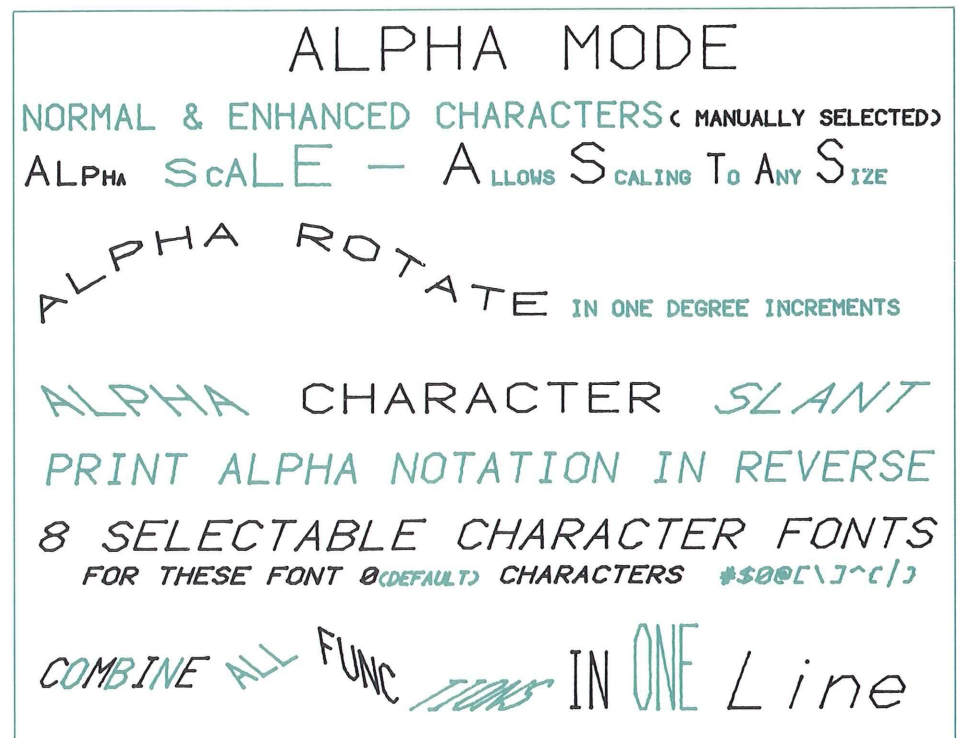 ALPHA MODE
NORMAL & ENHANCED CHARACTERS ( MANUALLY SELECTED)
ALPHA SCALE - ALLOWS SCALING TO ANY SIZE
ALPHA ROTATE IN ONE DEGREE INCREMENTS
ALPHA CHARACTER SLANT
PRINT ALPHA NOTATION IN REVERSE
8 SELECTABLE CHARACTER FONTS
FOR THESE FONT 0(DEFAULT) CHARACTERS #$0@[\]^{|}
COMBINE ALL FUNCTIONS IN ONE Line